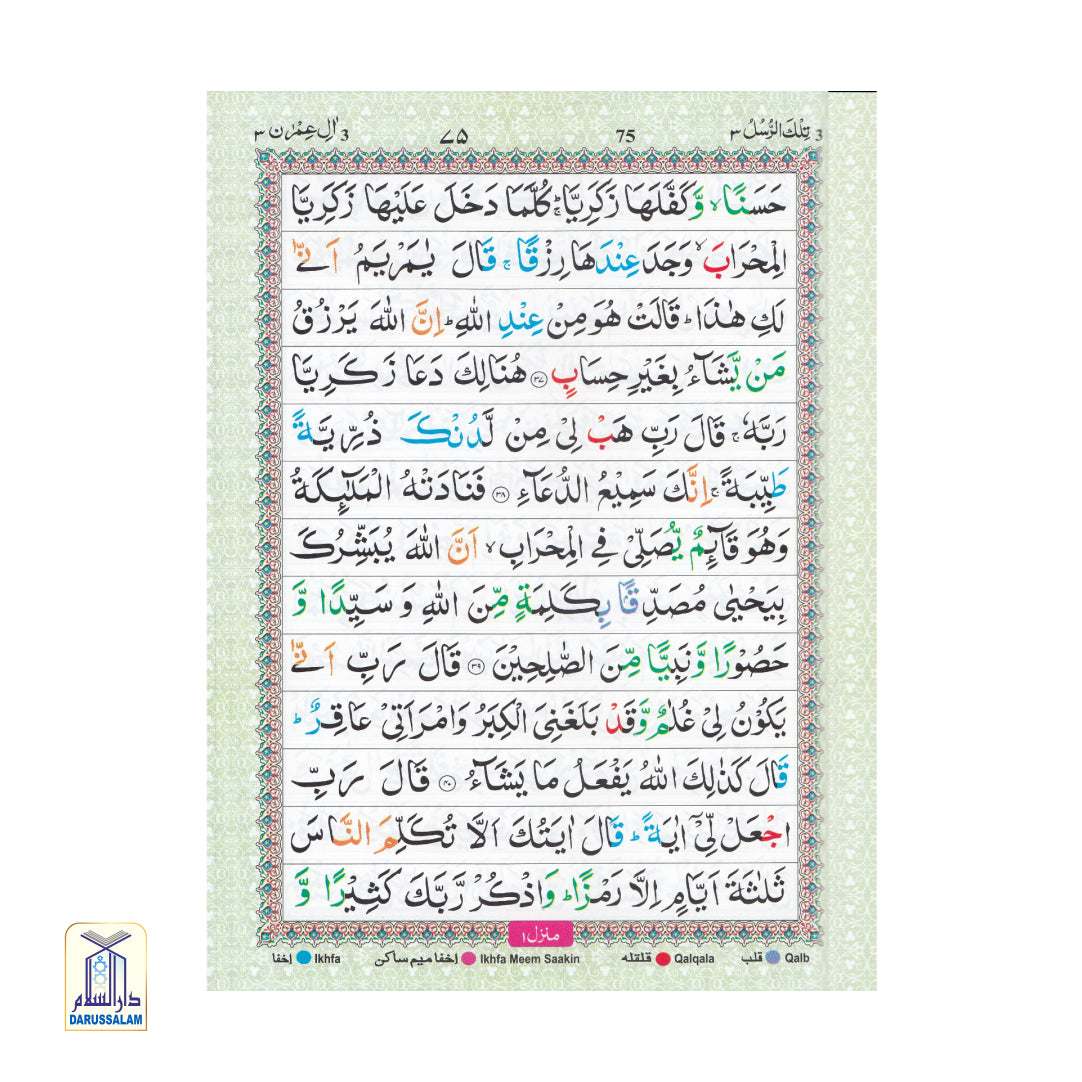 3 تِلْكَ الرُّسُلُ ٣ 75 ٧٥ 3 اٰلِ عِمْرٰن ٣
حَسَنًا ۙ وَّ كَفَّلَهَا زَكَرِيَّا ؕۚ كُلَّمَا دَخَلَ عَلَيْهَا زَكَرِيَّا
الْمِحْرَابَ ۙ وَجَدَ عِنْدَهَا رِزْقًا ۚ قَالَ يٰمَرْيَمُ اَنّٰى
لَكِ هٰذَا ؕ قَالَتْ هُوَ مِنْ عِنْدِ اللّٰهِ ؕ اِنَّ اللّٰهَ يَرْزُقُ
مَنْ يَّشَآءُ بِغَيْرِ حِسَابٍ ﴿۳۷﴾ هُنَالِكَ دَعَا زَكَرِيَّا
رَبَّهٗ ۚ قَالَ رَبِّ هَبْ لِىْ مِنْ لَّدُنْكَ ذُرِّيَّةً
طَيِّبَةً ۚ اِنَّكَ سَمِيْعُ الدُّعَآءِ ﴿۳۸﴾ فَنَادَتْهُ الْمَلٰٓئِكَةُ
وَهُوَ قَآئِمٌ يُّصَلِّىْ فِى الْمِحْرَابِ ۙ اَنَّ اللّٰهَ يُبَشِّرُكَ
بِيَحْيٰى مُصَدِّقًۢا بِكَلِمَةٍ مِّنَ اللّٰهِ وَ سَيِّدًا وَّ
حَصُوْرًا وَّ نَبِيًّا مِّنَ الصّٰلِحِيْنَ ﴿۳۹﴾ قَالَ رَبِّ اَنّٰى
يَكُوْنُ لِىْ غُلٰمٌ وَّ قَدْ بَلَغَنِىَ الْكِبَرُ وَامْرَاَتِىْ عَاقِرٌ ؕ
قَالَ كَذٰلِكَ اللّٰهُ يَفْعَلُ مَا يَشَآءُ ﴿۴۰﴾ قَالَ رَبِّ
اجْعَلْ لِّىْٓ اٰيَةً ؕ قَالَ اٰيَتُكَ اَلَّا تُكَلِّمَ النَّاسَ
ثَلٰثَةَ اَيَّامٍ اِلَّا رَمْزًا ؕ وَاذْكُرْ رَّبَّكَ كَثِيْرًا وَّ
منزل ۱
Ikhfa اِخفا Ikhfa Meem Saakin اِخفا میم ساکن Qalqala قلقله Qalb قلب
دارالسلام
DARUSSALAM